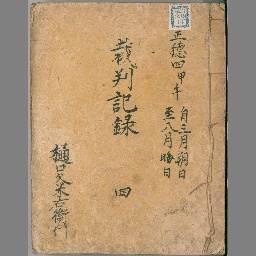 正徳四甲午 自三月朔日
至八月晦日
裁判記録 四
樋口久米右衛門